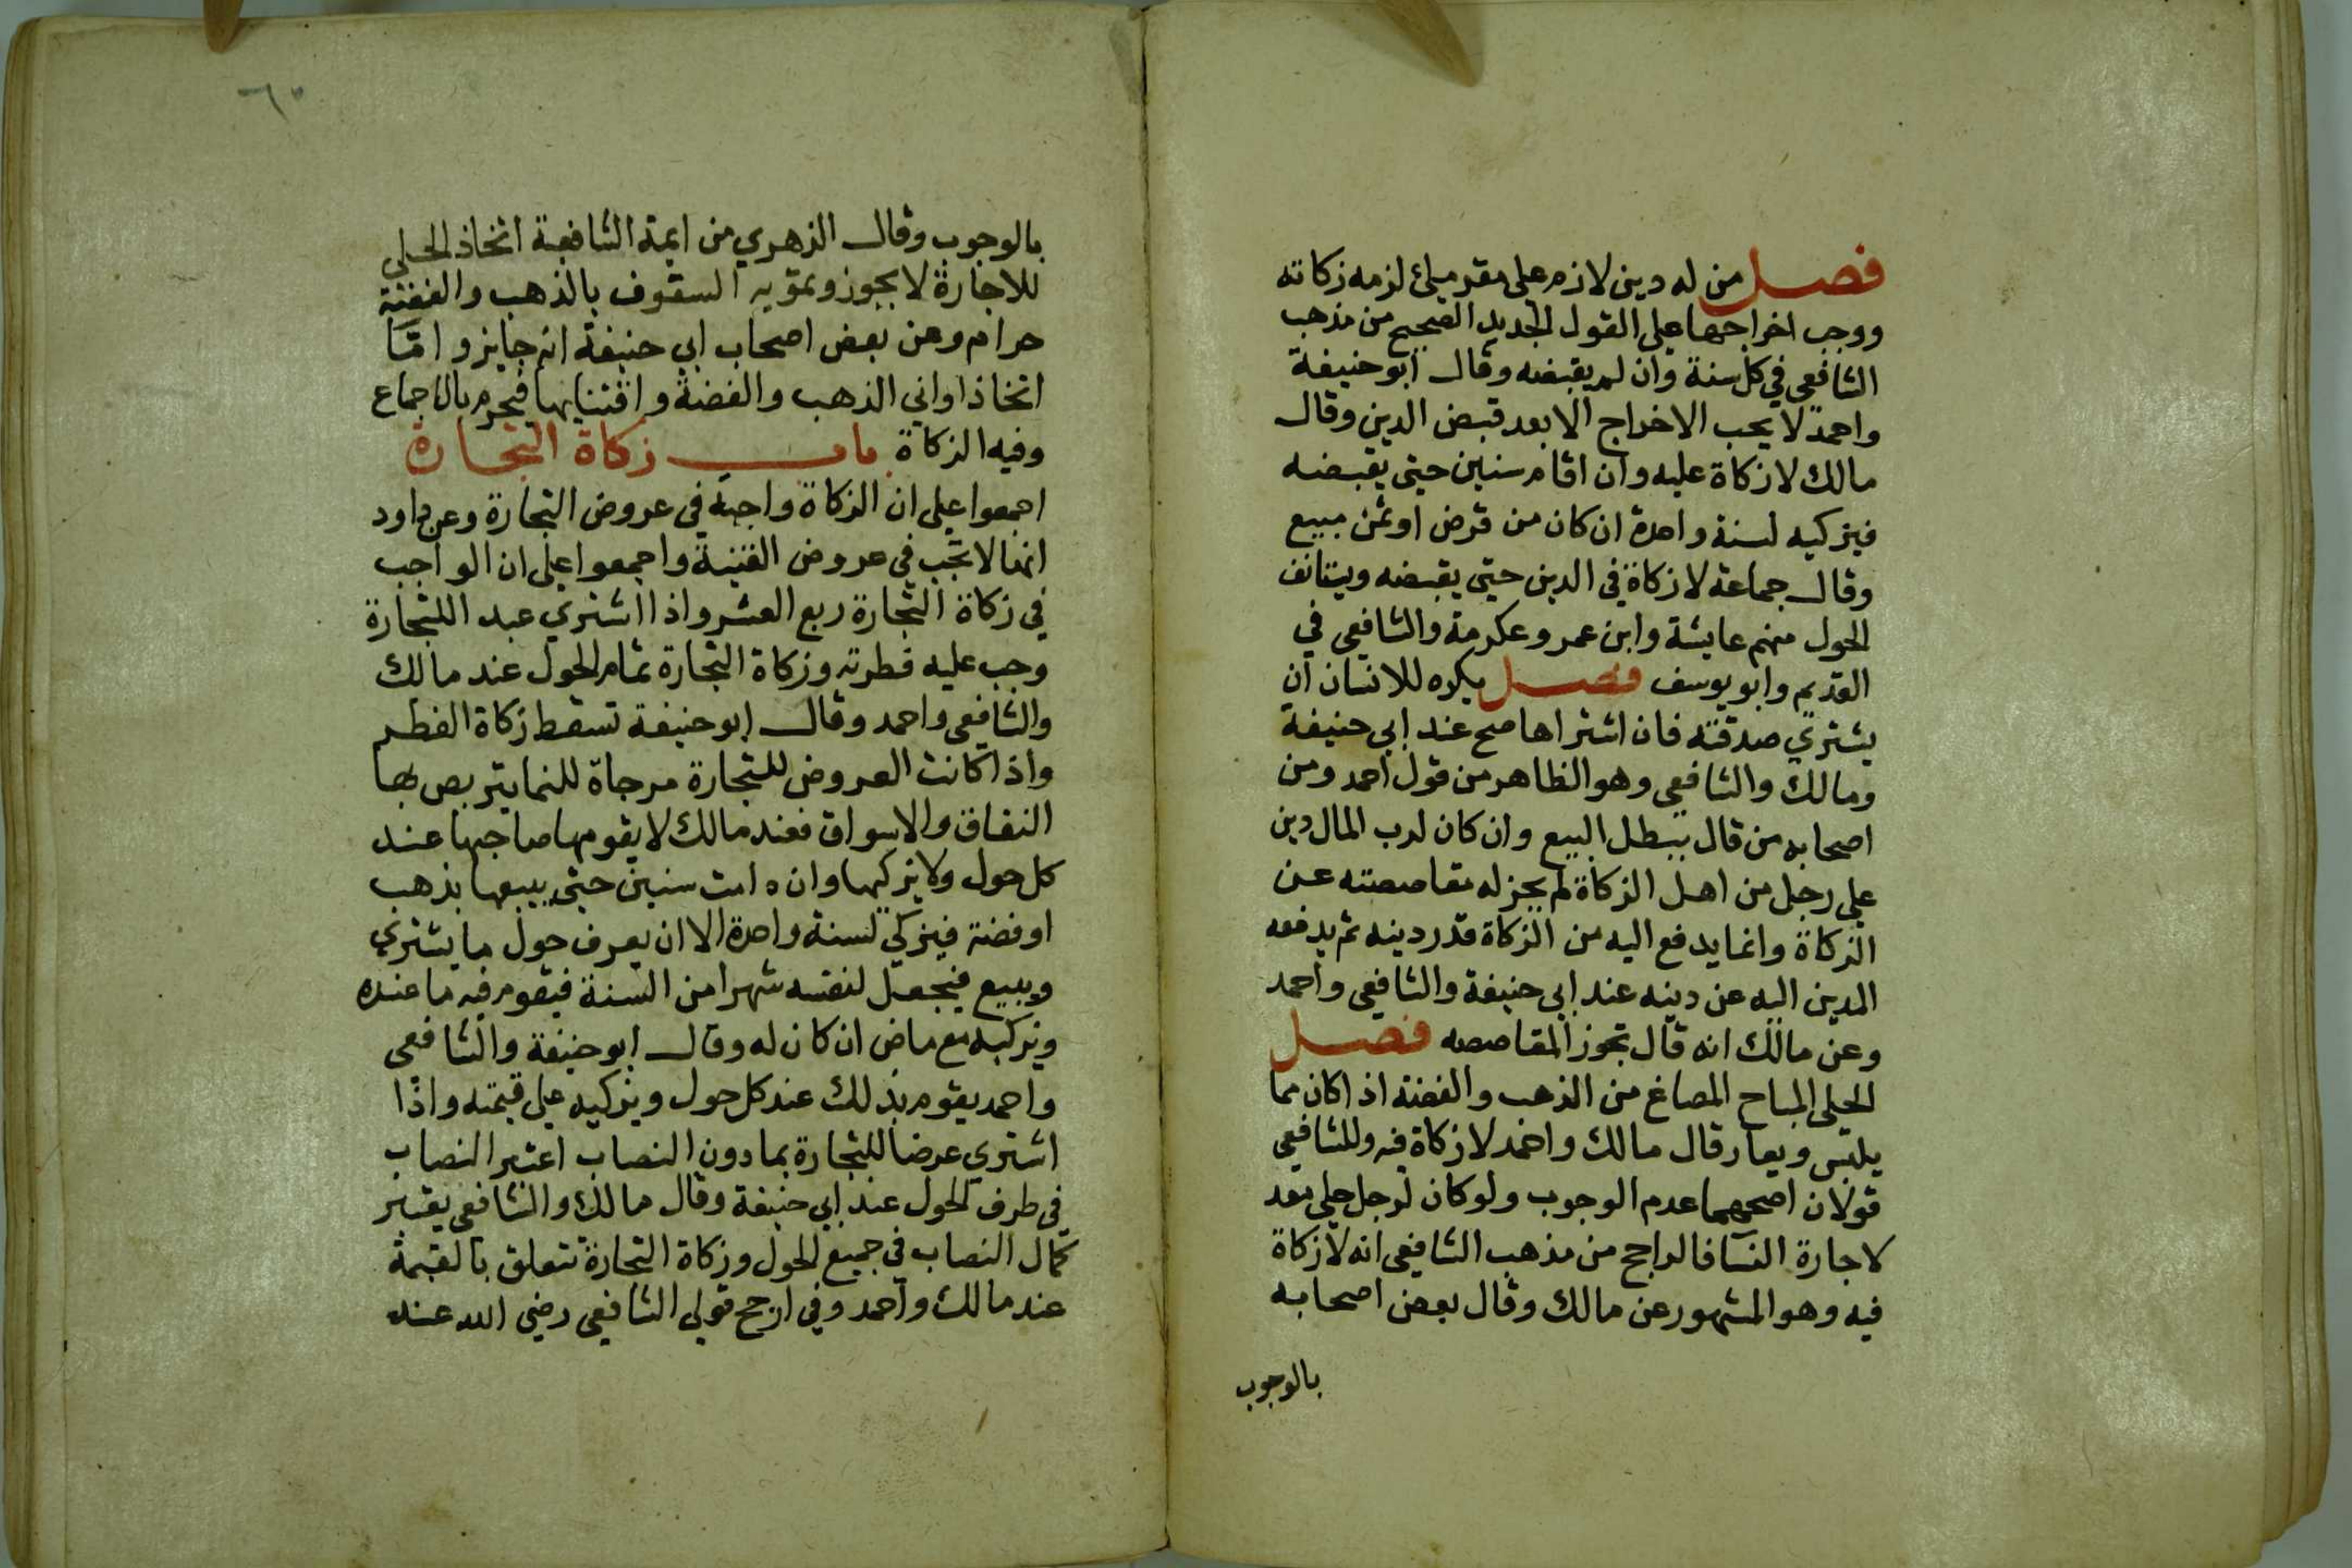 فصل من له دين لازم على مقر ملئ لزمه زكاته
ووجب اخراجها على القول الجديد الصحيح من مذهب
الشافعي في كل سنة وان لم يقبضه وقال ابو حنيفة
واحمد لا يجب الاخراج الا بعد قبض الدين وقال
مالك لا زكاة عليه وان اقام سنين حتى يقبضه
فيزكيه لسنة واحدة ان كان من قرض او ثمن مبيع
وقال جماعة لا زكاة في الدين حتى يقبضه ويستانف
الحول منهم عايشة وابن عمر وعكرمة والشافعي في
القديم وابو يوسف فصل يكره للانسان ان
يشتري صدقته فان اشتراها صح عند ابي حنيفة
ومالك والشافعي وهو الظاهر من قول احمد ومن
اصحابه من قال يبطل البيع وان كان لرب المال دين
على رجل من اهل الزكاة لم يجز له مقاصصته عن
الزكاة وانما يدفع اليه من الزكاة قدر دينه ثم يدفعه
المدين اليه عن دينه عند ابي حنيفة والشافعي واحمد
وعن مالك انه قال تجوز المقاصصه فصل
الحلي المباح المصاغ من الذهب والفضة اذا كان مما
يلبس ويعار قال مالك واحمد لا زكاة فيه وللشافعي
قولان اصحهما عدم الوجوب ولو كان لرجل حلي معد
لاجارة النسآ فالراجح من مذهب الشافعي انه لا زكاة
فيه وهو المشهور عن مالك وقال بعض اصحابه
بالوجوب
٦٥
بالوجوب وقال الزهري من ايمة الشافعية اتخاذ الحلي
للاجارة لا يجوز وتمويه السقوف بالذهب والفضة
حرام وعن بعض اصحاب ابي حنيفة انه جايز وامّا
اتخاذ اواني الذهب والفضة واقتنايها فيحرم بالاجماع
وفيه الزكاة باب زكاة التجارة
اجمعوا على ان الزكاة واجبة في عروض التجارة وعن داود
انها لا تجب في عروض القنية واجمعوا على ان الواجب
في زكاة التجارة ربع العشر واذا اشتري عبد اللتجارة
وجب عليه فطرته وزكاة التجارة تمام الحول عند مالك
والشافعي واحمد وقال ابو حنيفة تسقط زكاة الفطر
واذا كانت العروض للتجارة مرجاة للنما يتربص بها
النفاق والاسواق فعند مالك لا يقومها صاحبها عند
كل حول ولا يزكيها وان دامت سنين حتى يبيعها بذهب
او فضة فيزكي لسنة واحدة الا ان يعرف حول ما يشتري
ويبيع فيجعل لنفسه شهرا من السنة فيقوم فيه ما عنده
ويزكيه مع ماض ان كان له وقال ابو حنيفة والشافعي
واحمد يقوم بذلك عند كل حول ويزكيه على قيمته واذا
اشتري عرضا للتجارة بما دون النصاب اعتبر النصاب
في طرف الحول عند ابي حنيفة وقال مالك والشافعي يعتبر
كمال النصاب في جميع الحول وزكاة التجارة تتعلق بالقيمة
عند مالك واحمد وفي ارجح قولي الشافعي رضي الله عنه